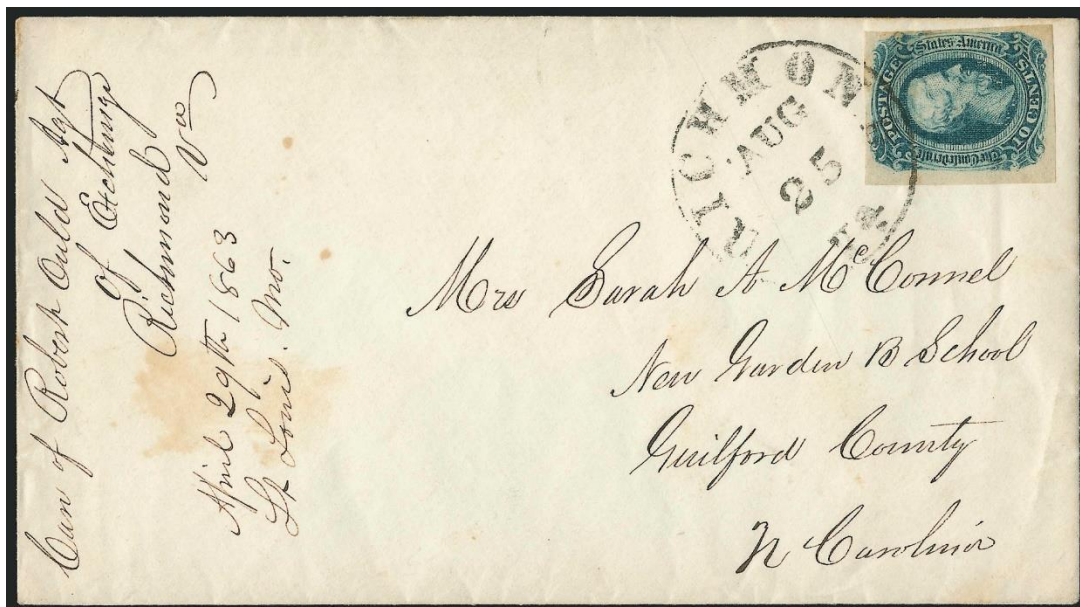 Care of Robert Ould Agt
of Exchange
Richmond
Va
April 29th 1863
St Louis. Mo.
RICHMOND
AUG
25
VA.
The Confederate
States America
POSTAGE
10 CENTS
Mrs Sarah A McConnel
New Garden B School
Guilford County
N Carolina